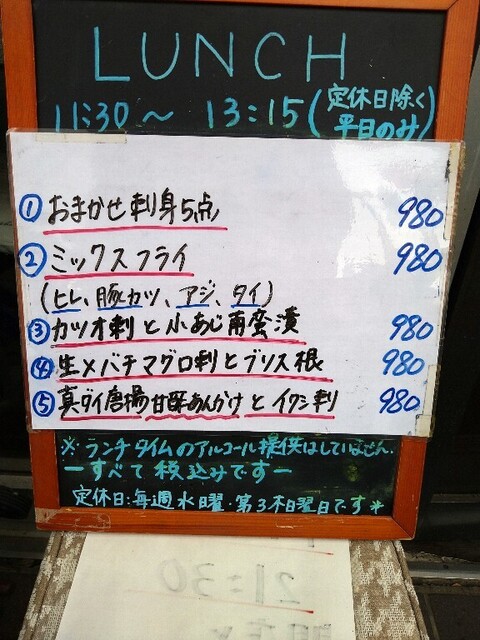 LUNCH
11:30～13:15(定休日除く
平日のみ)
① おまかせ刺身5点 980
② ミックスフライ 980
(ヒレ、豚カツ、アジ、タイ)
③ カツオ刺と小あじ南蛮漬 980
④ 生メバチマグロ刺とブリス根 980
⑤ 真ダイ唐揚甘酢あんかけとイワシ刺 980
※ランチタイムのアルコール提供はしていません.
ーすべて税込みですー
定休日:毎週水曜・第3木曜日です*
21:30